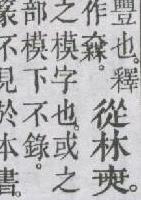 豐也。釋
作
從林
之模字也。或之
部模下不錄。
篆不見於本書。